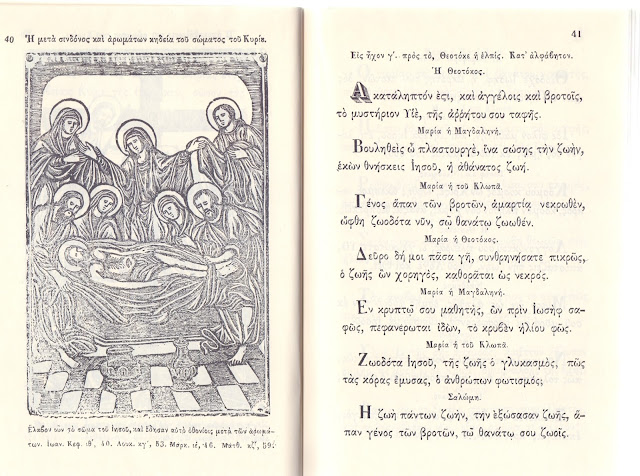 40
Ἡ μετὰ σινδόνος καὶ ἀρωμάτων κηδεία τοῦ σώματος τοῦ Κυρίȣ.
Ελαβον οὖν τὸ σῶμα τοῦ Ιησοῦ, καὶ ἔδησαν αὐτὸ ὀθονίοις μετὰ τῶν ἀρωμά-
των. Ιωαν. Κεφ. ιθ΄, 40. Λουκ. κγ΄, 53. Μάρκ. ιέ, 46. Ματθ. κζ΄, 59.
41
Εἰς ἦχον γ΄. πρὸς τὸ, Θεοτόκε ἡ ἐλπίς. Κατ᾽ ἀλφάβητον.
Ἡ Θεοτόκος.
Ακατάληπτόν ἐϛι, καὶ ἀγγέλοις καὶ βροτοῖς,
τὸ μυστήριον Υἱὲ, τῆς ἀῤῥήτου σου ταφῆς.
Μαρία ἡ Μαγδαληνή.
Βουληθεὶς ὦ πλαστουργὲ, ἵνα σώσῃς τὴν ζωὴν,
ἑκὼν θνήσκεις Ιησοῦ, ἡ ἀθάνατος ζωή.
Μαρία ἡ τοῦ Κλωπᾶ.
Γένος ἅπαν τῶν βροτῶν, ἁμαρτίᾳ νεκρωθὲν,
ὤφθη ζωοδότα νῦν, σῷ θανάτῳ ζωωθέν.
Μαρία ἡ Θεοτόκος.
Δεῦρο δή μοι πᾶσα γῆ, συνθρηνήσατε πικρῶς,
ὁ ζωῆς ὢν χορηγὸς, καθορᾶται ὡς νεκρός.
Μαρία ἡ Μαγδαληνή.
Εν κρυπτῷ σου μαθητὴς, ὢν πρὶν Ιωσὴφ σα-
φῶς, πεφανέρωται ἰδὼν, τὸ κρυβὲν ἡλίου φῶς.
Μαρία ἡ τοῦ Κλωπᾶ.
Ζωοδότα Ιησοῦ, τῆς ζωῆς ὁ γλυκασμὸς, πῶς
τὰς κόρας ἔμυσας, ὁ ἀνθρώπων φωτισμός;
Σαλώμη.
Η ζωὴ πάντων ζωὴν, τὴν ἐξώσασαν ζωῆς, ἅ-
παν γένος τῶν βροτῶν, τῷ θανάτῳ σου ζωοῖς.